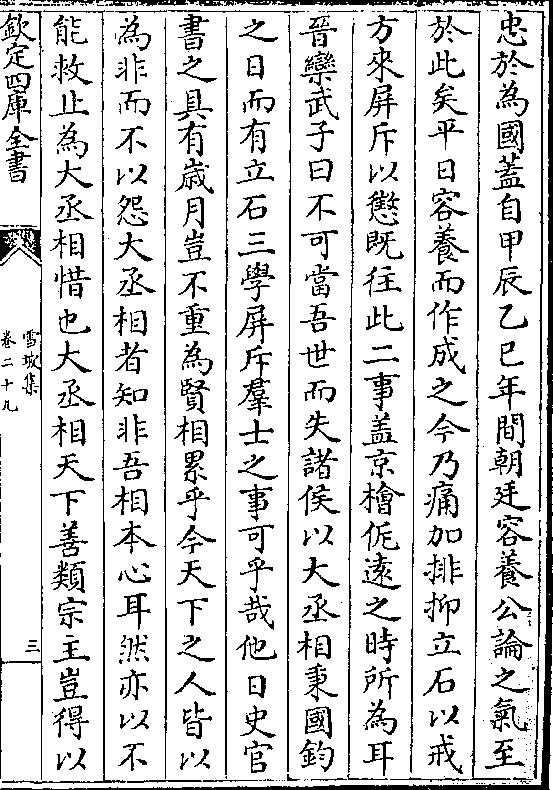 忠於為國蓋自甲辰乙巳年間朝廷容養公論之氣至
於此矣平日容養而作成之今乃痛加排抑立石以戒
方來屏斥以懲既往此二事蓋京檜侂逺之時所為耳
晉欒武子曰不可當吾世而失諸侯以大丞相秉國鈞
之日而有立石三學屏斥羣士之事可乎哉他日史官
書之具有歲月豈不重為賢相累乎今天下之人皆以
為非而不以怨大丞相者知非吾相本心耳然亦以不
能救止為大丞相惜也大丞相天下善類宗主豈得以
欽定四庫全書
雪坡集
卷二十九
三